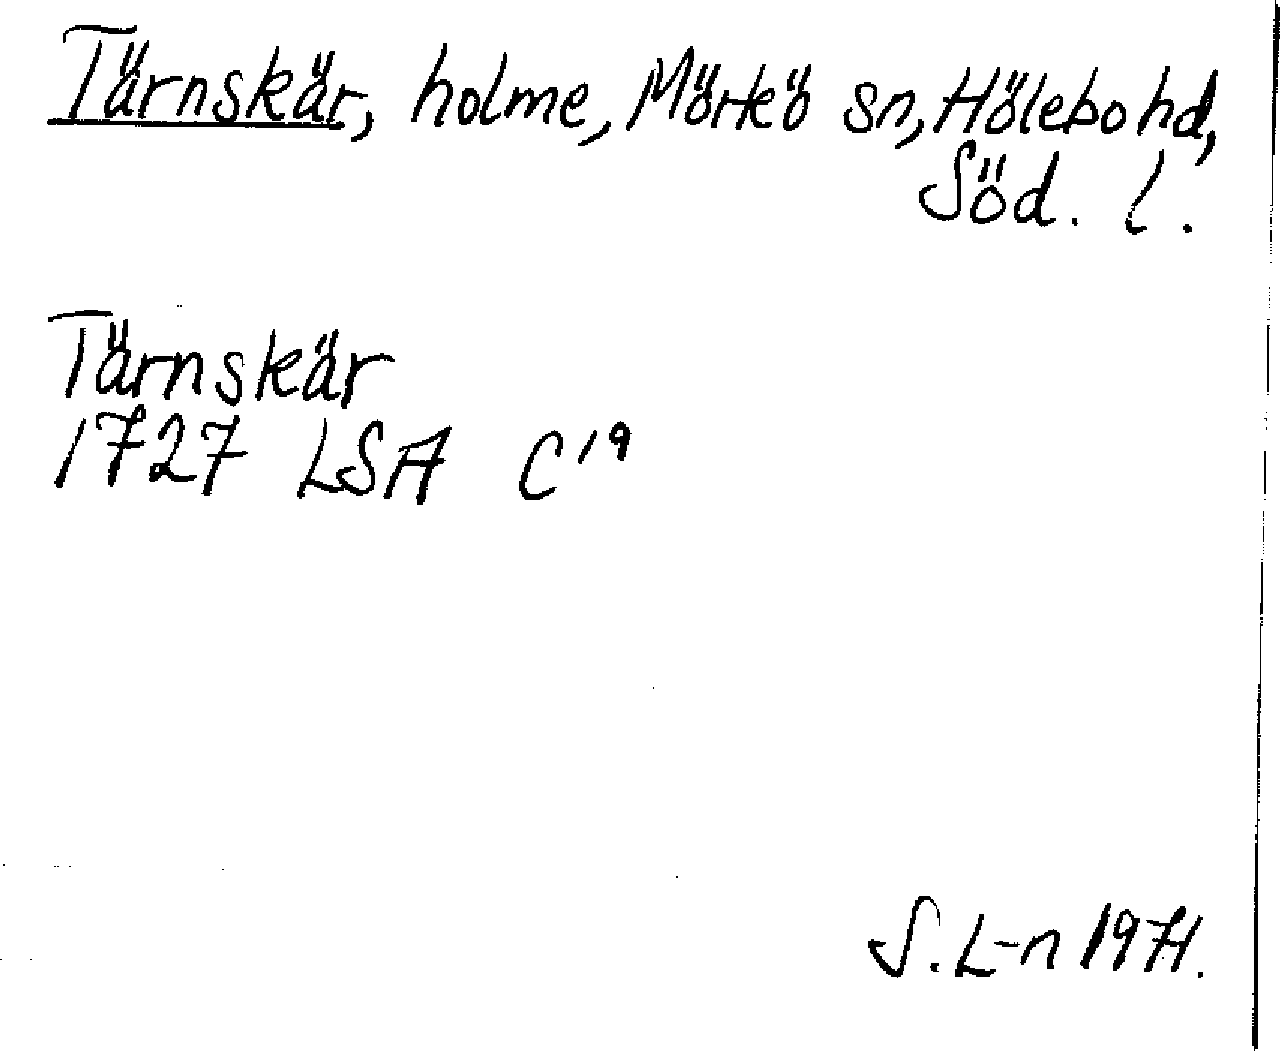 Tärnskär, holme, Mörkö sn, Hölebo hd,
Söd. l.
Tärnskär
1727 LSA C¹⁹
S. L-n 1971.